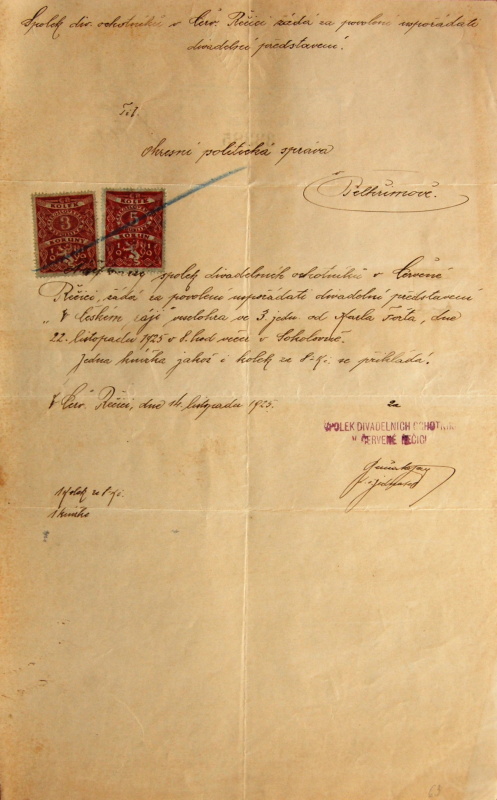 Spolek div. ochotníků v Červ. Řečici žádá za povolení uspořádati
divadelní představení.
Tit.
okresní politická správa
v Pelhřimově.
ČS
KOLEK
3
KORUNY
1919
ČS
KOLEK
5
KORUN
1919
spolek divadelních ochotníků v Červené
Řečici, žádá za povolení uspořádati divadelní představení
„V českém ráji" veselohra ve 3 jedn. od Karla Fořta, dne
22. listopadu 1925 v 8. hod večer v Sokolovně.
Jedna knížka jakož i kolek za 8 Kč. se přikládá.
V Červ. Řečici, dne 14. listopadu 1925.
za
SPOLEK DIVADELNÍCH OCHOTNÍKŮ
V ČERVENÉ ŘEČICI
jednatel
1 kolek za 8 Kč.
1 knížka